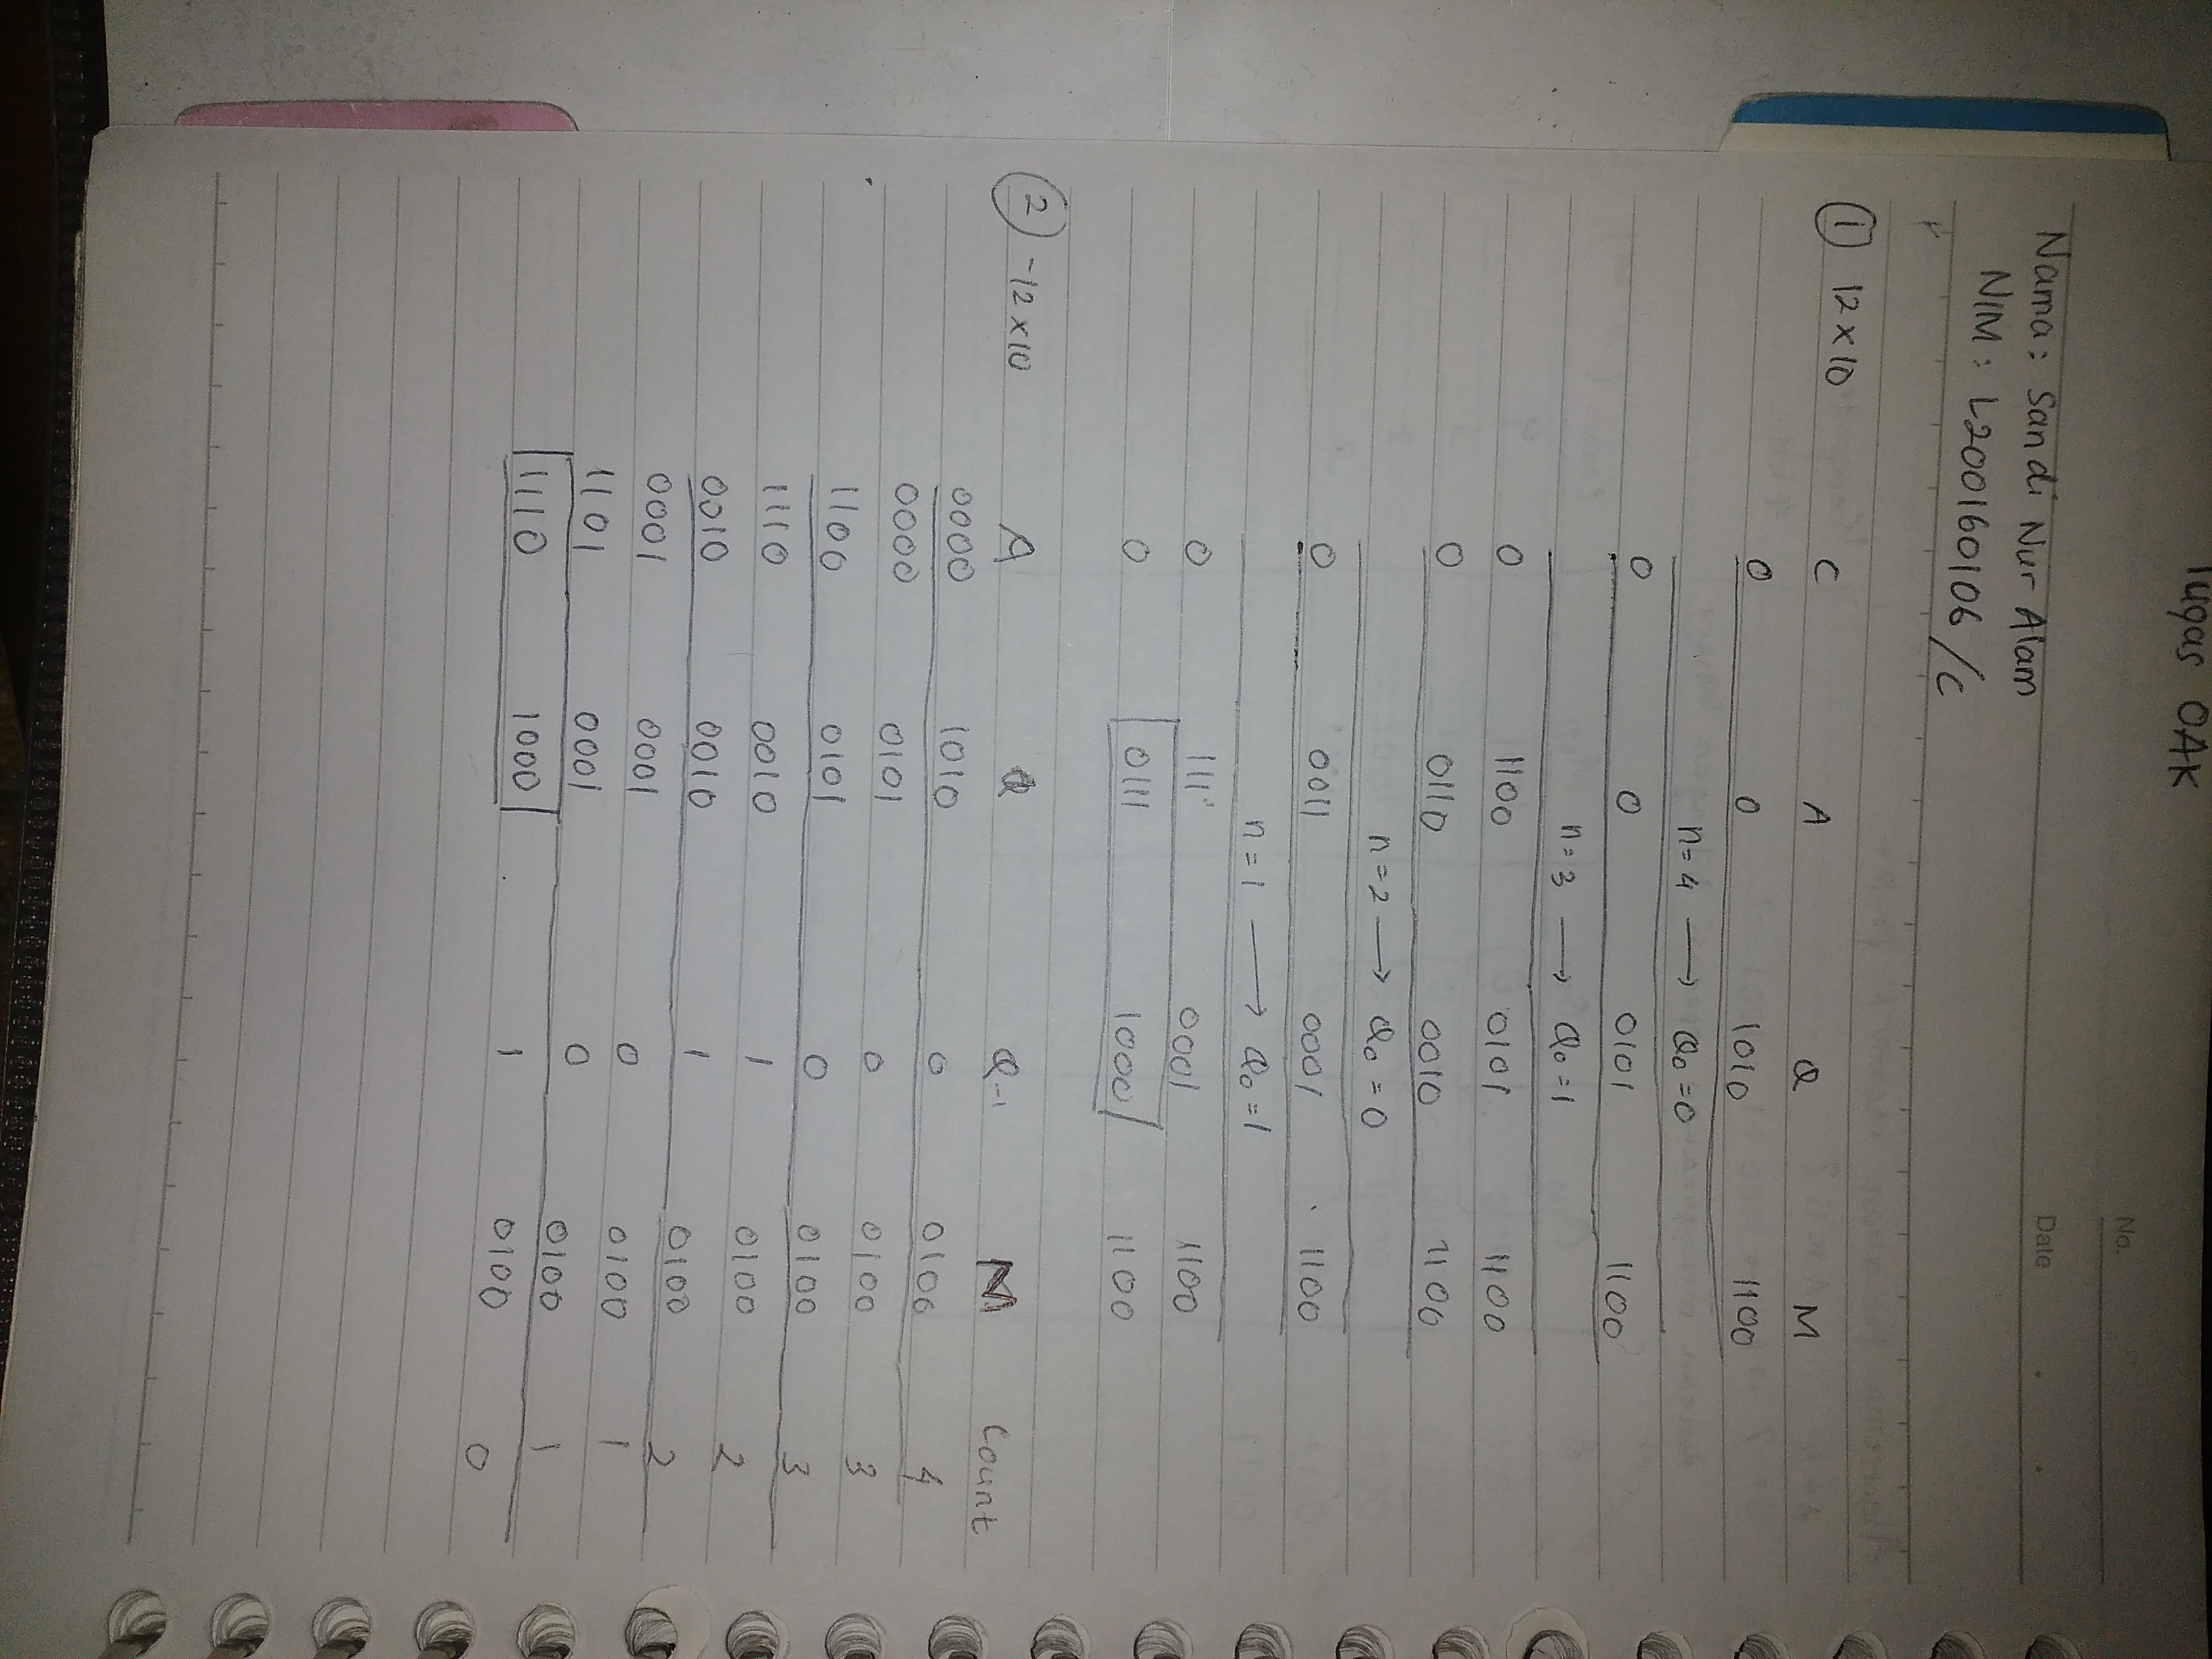 Tugas OAK
No.
Date
Nama : Sandi Nur Alam
NIM : L200160106 / C
1 12 x 10
C A Q M
0 0 1010 1100
n = 4 → Q0 = 0
0 0 0101 1100
n = 3 → Q0 = 1
0 1100 0101 1100
0 0110 0010 1100
n = 2 → Q0 = 0
0 0011 0001 1100
n = 1 → Q0 = 1
0 1111 0001 1100
0 0111 1000 1100
2 -12 x 10
A Q Q-1 M Count
0000 1010 0 0100 4
0000 0101 0 0100 3
1100 0101 0 0100 3
1110 0010 1 0100 2
0010 0010 1 0100 2
0001 0001 0 0100 1
1101 0001 0 0100 1
1110 1000 1 0100 0